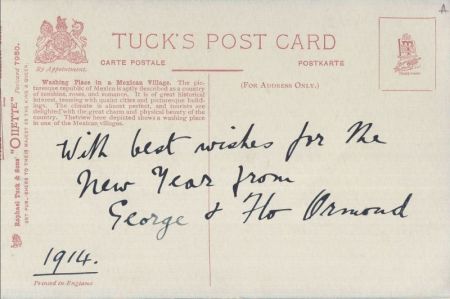 TUCK'S POST CARD
By Appointment.
CARTE POSTALE
POSTKARTE
(FOR ADDRESS ONLY.)
Washing Place in a Mexican Village. The pic-
turesque republic of Mexico is aptly described as a country
of sunshine, roses, and romance. It is of great historical
interest, teeming with quaint cities and picturesque build-
ings. The climate is almost perfect, and tourists are
delighted with the great charm and physical beauty of the
country. The view here depicted shows a washing place
in one of the Mexican villages.
With best wishes for the
New Year from
George & Flo Ormond
1914.
Printed in England
Raphael Tuck & Sons' "OILETTE" Postcard 7950.
ART PUBLISHERS TO THEIR MAJESTIES THE KING & THE QUEEN.
A